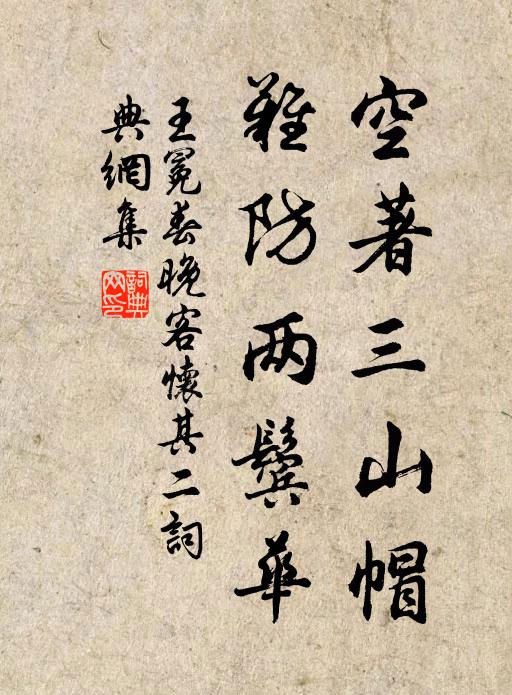 空著三山帽
難防两鬓華
王冕春晚客懷其二詞
典網集
詞典
网印